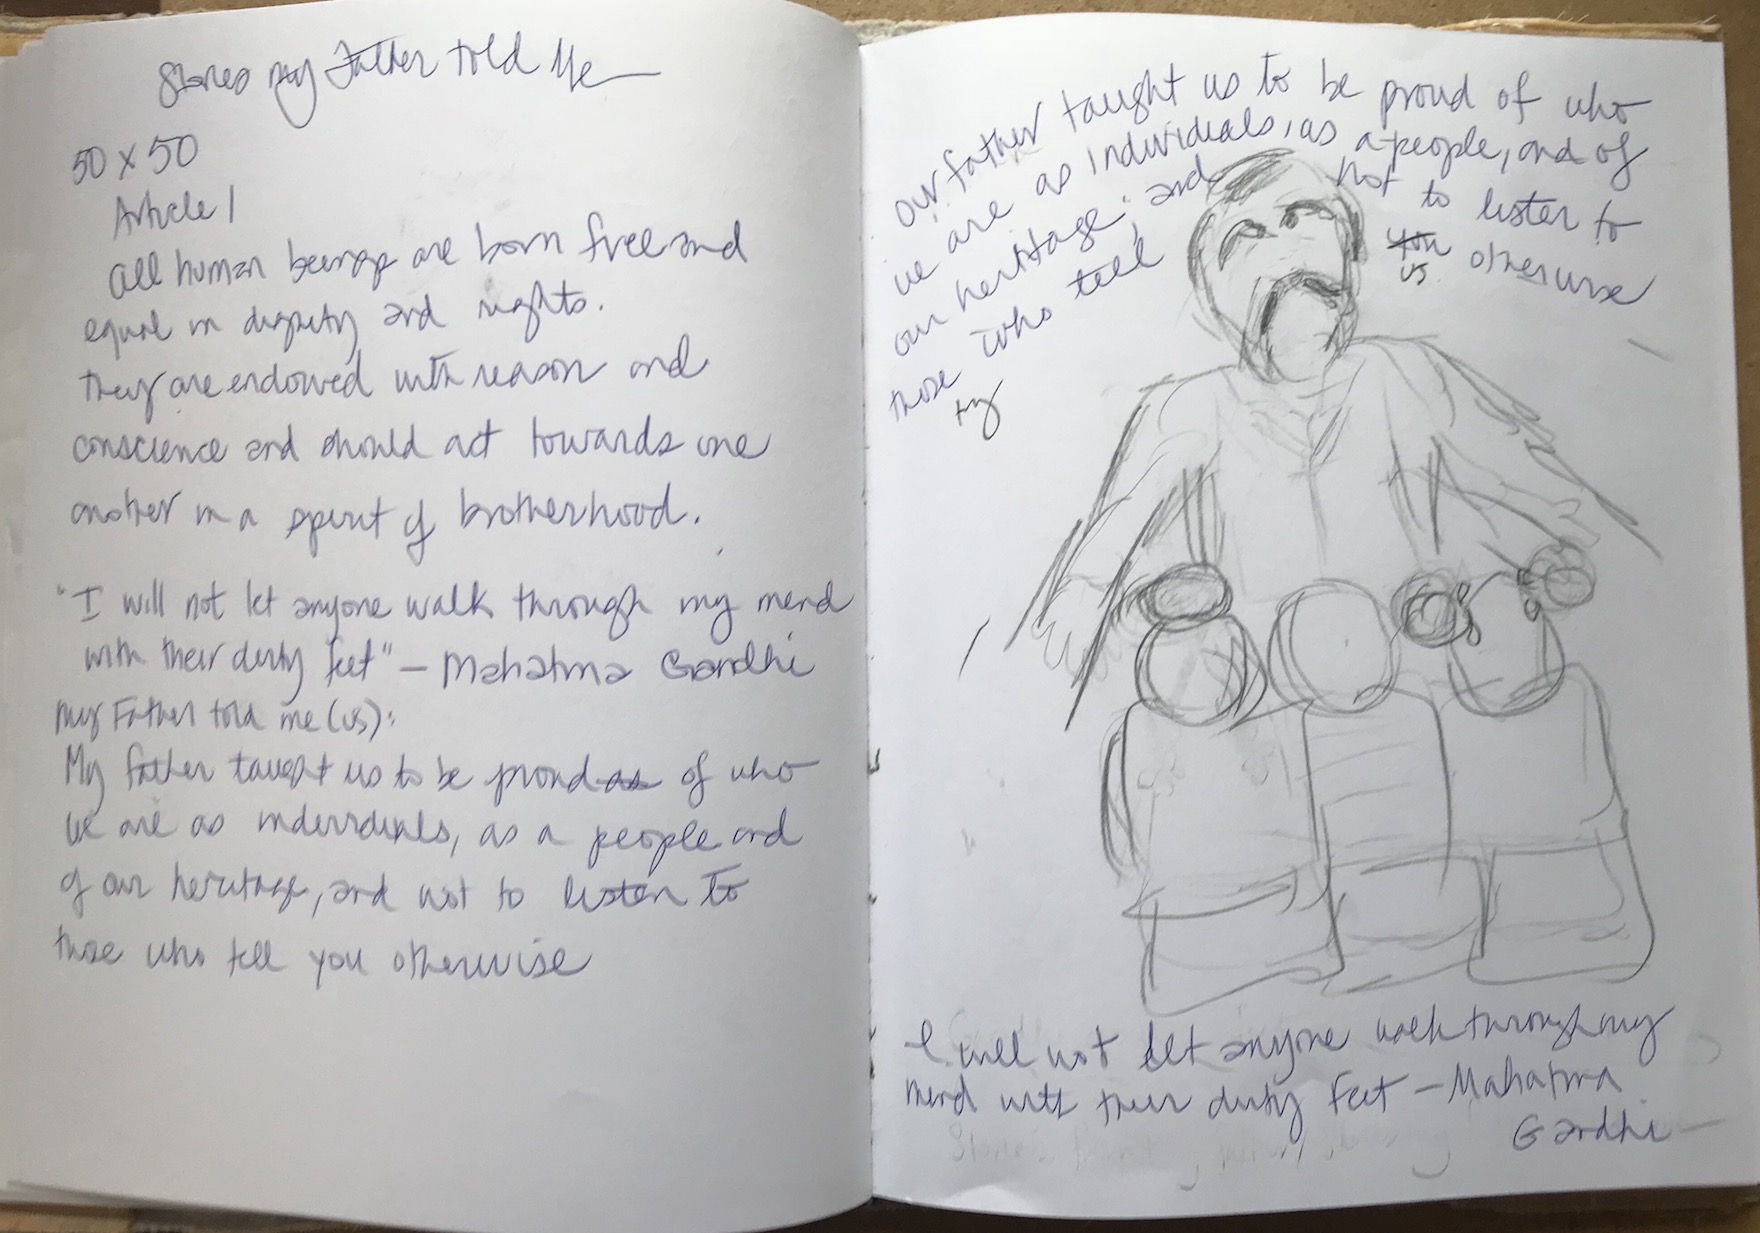 Stories my Father told Me
50 x 50
Article 1
All human beings are born free and
equal in dignity and rights.
They are endowed with reason and
conscience and should act towards one
another in a spirit of brotherhood.
"I will not let anyone walk through my mind
with their dirty feet" - Mahatma Gandhi
My Father told me (us):
My father taught us to be proud as of who
we are as individuals, as a people and
of our heritage, and not to listen to
those who tell you otherwise
Our father taught us to be proud of who
we are as individuals, as a people, and of
our heritage; and not to listen to
those who tell you otherwise
try us
I will not let anyone walk through my
mind with their dirty feet - Mahatma
Gandhi